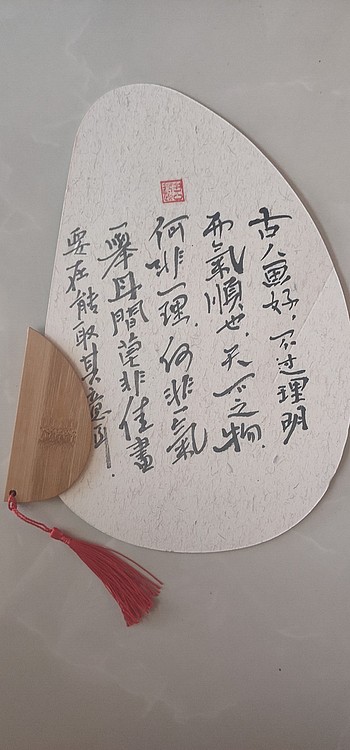 古人画好，不过理明
而气顺也，天下之物，
何非一理，何非一气
举目间莫非佳画
要在能取其意耳